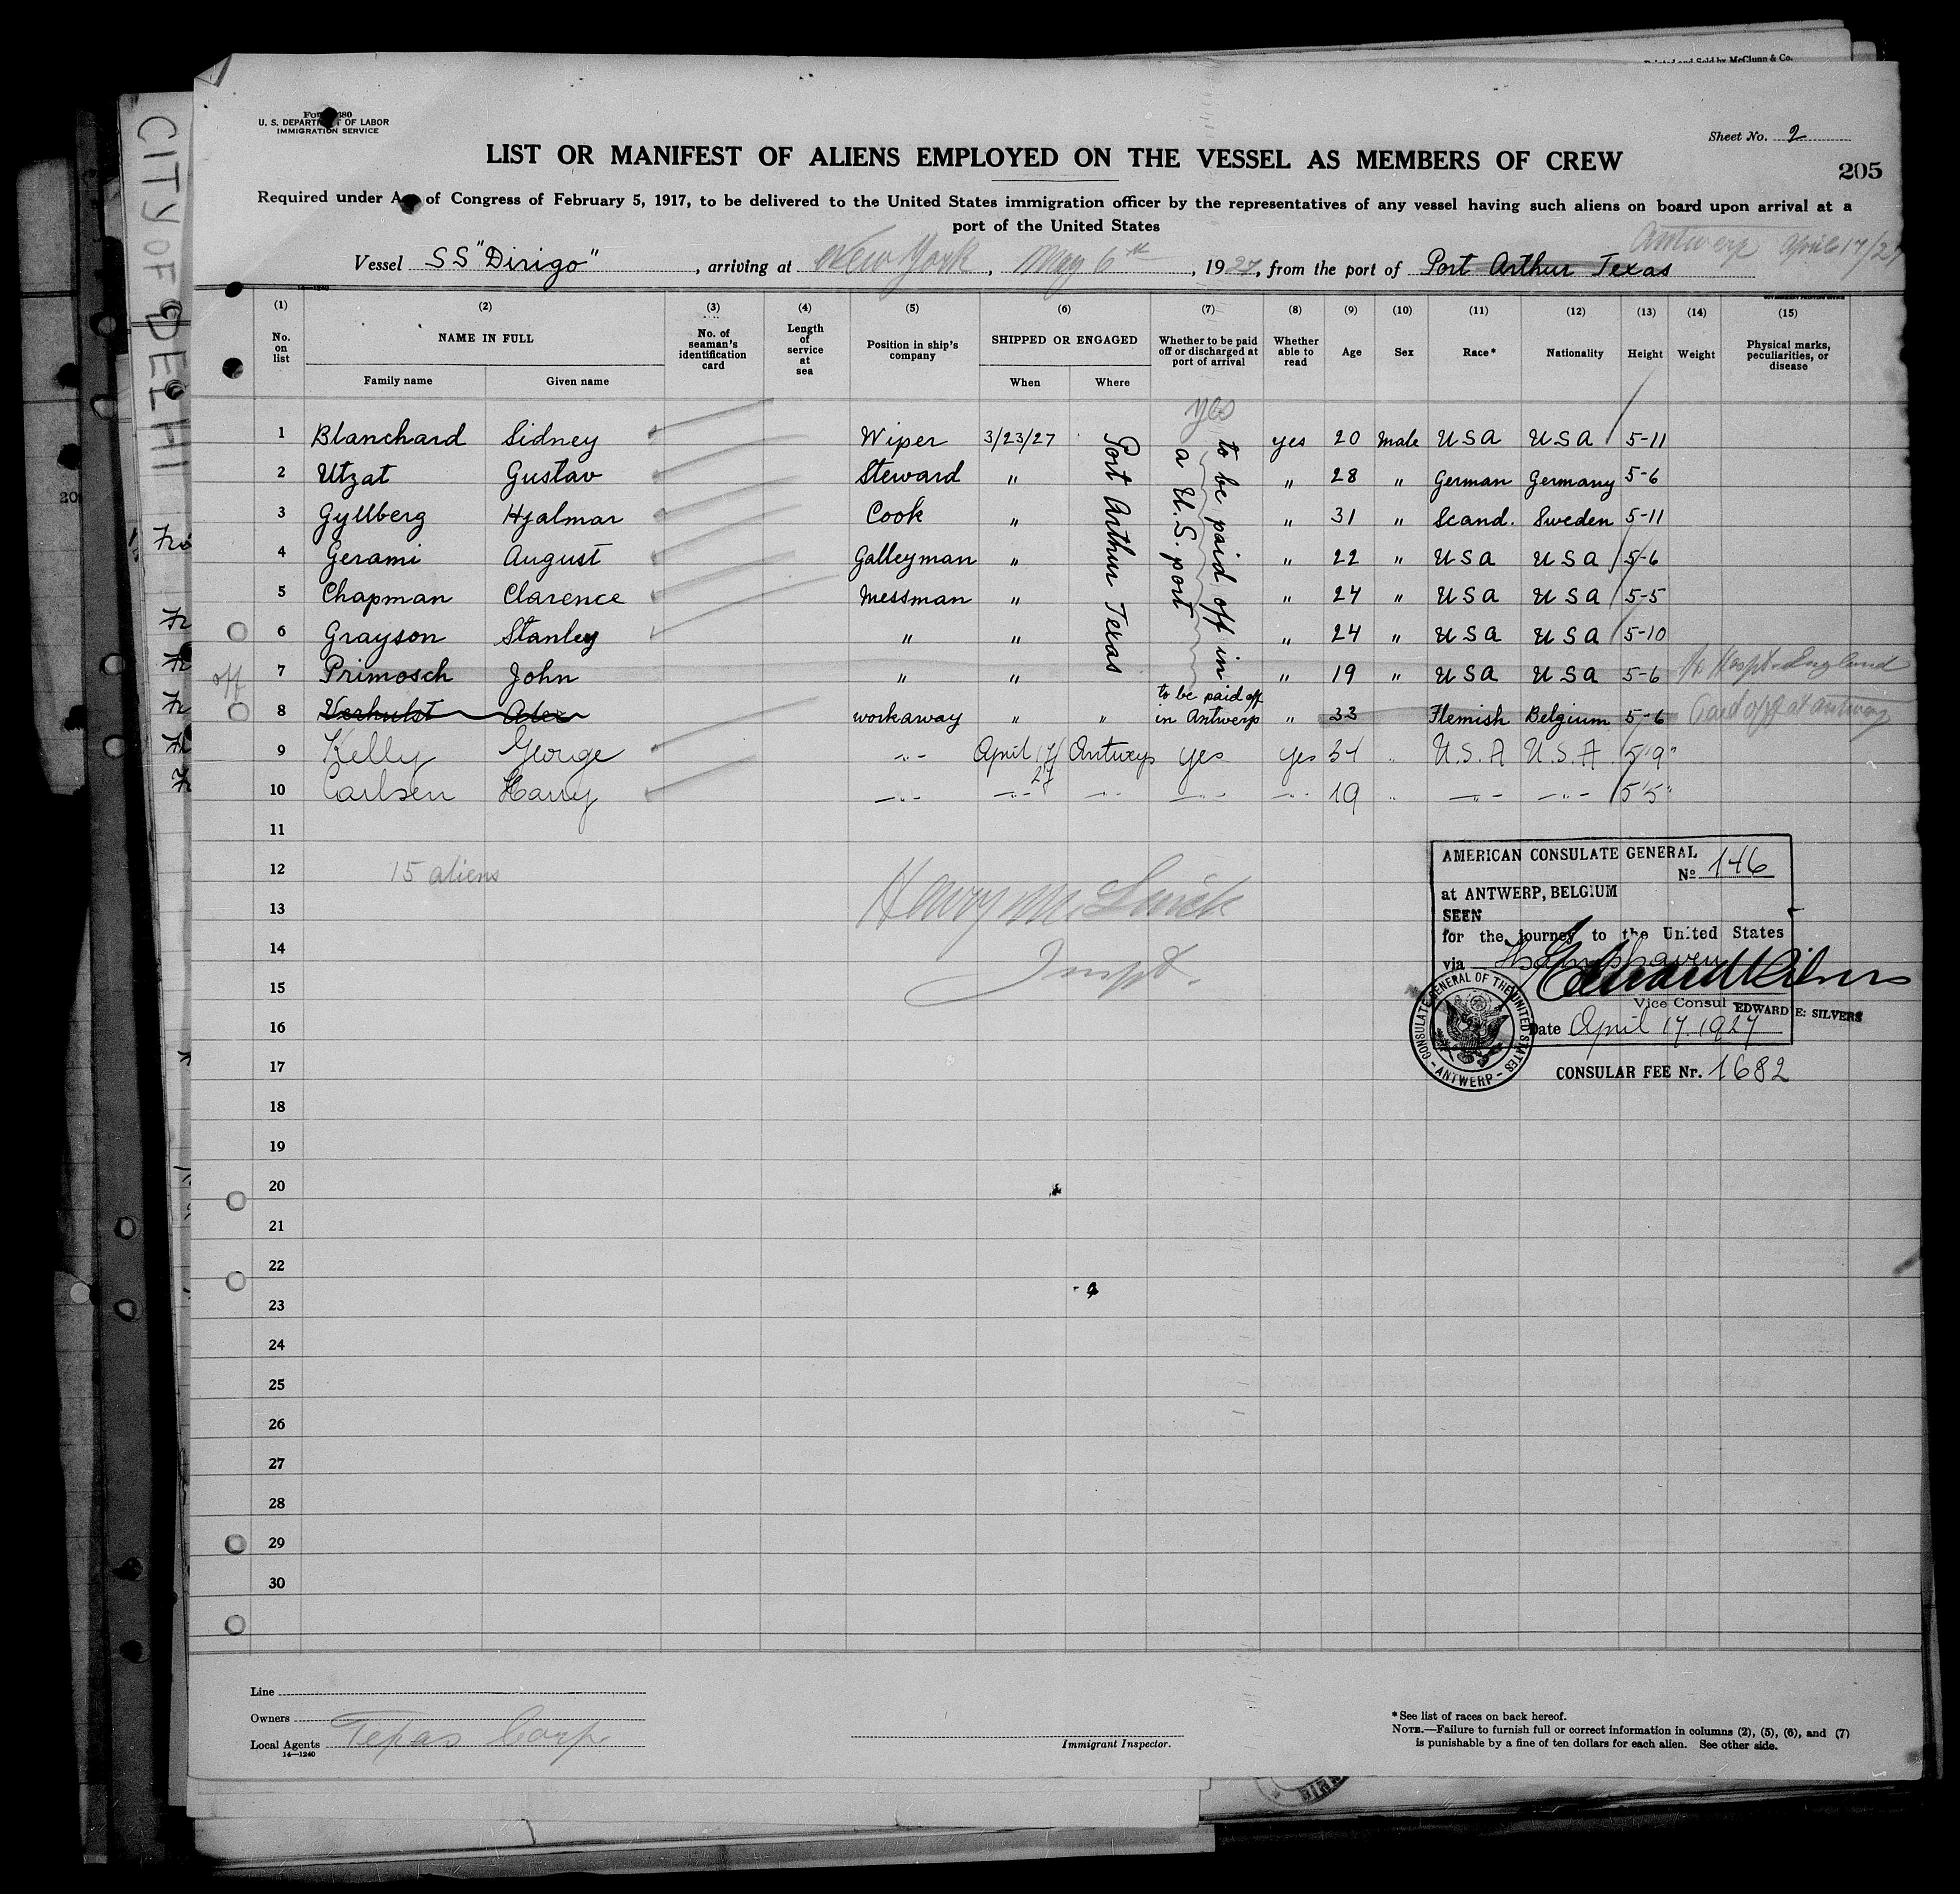 Printed and Sold by McClunn & Co.
CITY OF DELHI
U. S. DEPARTMENT OF LABOR
IMMIGRATION SERVICE
Sheet No. 2
LIST OR MANIFEST OF ALIENS EMPLOYED ON THE VESSEL AS MEMBERS OF CREW
205
Required under Act of Congress of February 5, 1917, to be delivered to the United States immigration officer by the representatives of any vessel having such aliens on board upon arrival at a
port of the United States
Antwerp April 17/27
Vessel SS "Dirigo", arriving at New York, May 6th, 1927, from the port of Port Arthur Texas
(1) (2) (3) (4) (5) (6) (7) (8) (9) (10) (11) (12) (13) (14) (15)
No. on list
NAME IN FULL
Family name Given name
No. of seaman's identification card
Length of service at sea
Position in ship's company
SHIPPED OR ENGAGED
When Where
Whether to be paid off or discharged at port of arrival
Whether able to read
Age Sex Race* Nationality Height Weight
Physical marks, peculiarities, or disease
yes
Port Arthur Texas
to be paid off in
a U.S. port
1 Blanchard Sidney Wiper 3/23/27 yes 20 Male USA USA 5-11
2 Utzat Gustav Steward " " 28 " German Germany 5-6
3 Gyllberg Hjalmar Cook " " 31 " Scand. Sweden 5-11
4 Gerami August Galleyman " " 22 " USA USA 5-6
5 Chapman Clarence Messman " " 24 " USA USA 5-5
6 Grayson Stanley " " " 24 " USA USA 5-10
off 7 Primosch John " " " 19 " USA USA 5-6 In Hospt. England
8 Verhulst Alex workaway " " to be paid off in Antwerp " 33 Flemish Belgium 5-6 Paid off at Antwerp
9 Kelly George -"- April 17/27 Antwerp yes yes 34 " U.S.A U.S.A. 5'9"
10 Carlsen Harry -"- -"- -"- -"- -"- 19 " -"- -"- 5'5"
11
12 15 aliens
13
14
15
16
17
18
19
20
21
22
23
24
25
26
27
28
29
30
Inspt.
AMERICAN CONSULATE GENERAL
No 146
at ANTWERP, BELGIUM
SEEN
for the journey to the United States
via
Vice Consul EDWARD E. SILVERS
Date April 17. 1927
CONSULATE GENERAL OF THE UNITED STATES - ANTWERP -
CONSULAR FEE Nr. 1682
Line
Owners
Local Agents Texas Corp
14—1240
Immigrant Inspector.
* See list of races on back hereof.
NOTE.—Failure to furnish full or correct information in columns (2), (5), (6), and (7)
is punishable by a fine of ten dollars for each alien. See other side.